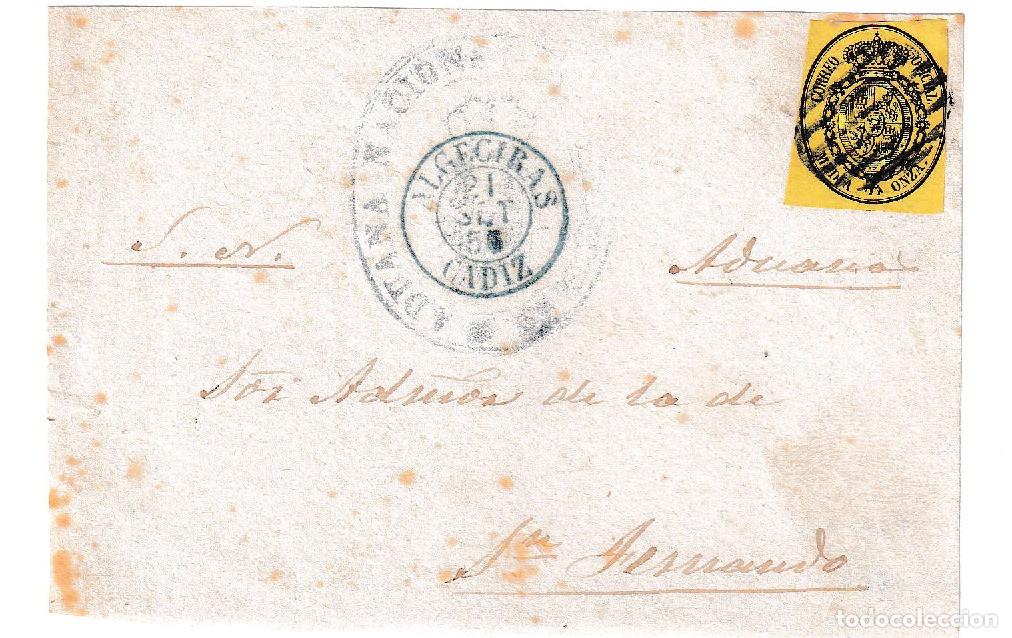 CORREO OFICIAL
MEDIA ONZA.
ADUANA NACION
ALGECIRAS
21
SET
CADIZ
S. N.
Aduana
Sor Admor de la de
Sn Fernando
todocoleccion